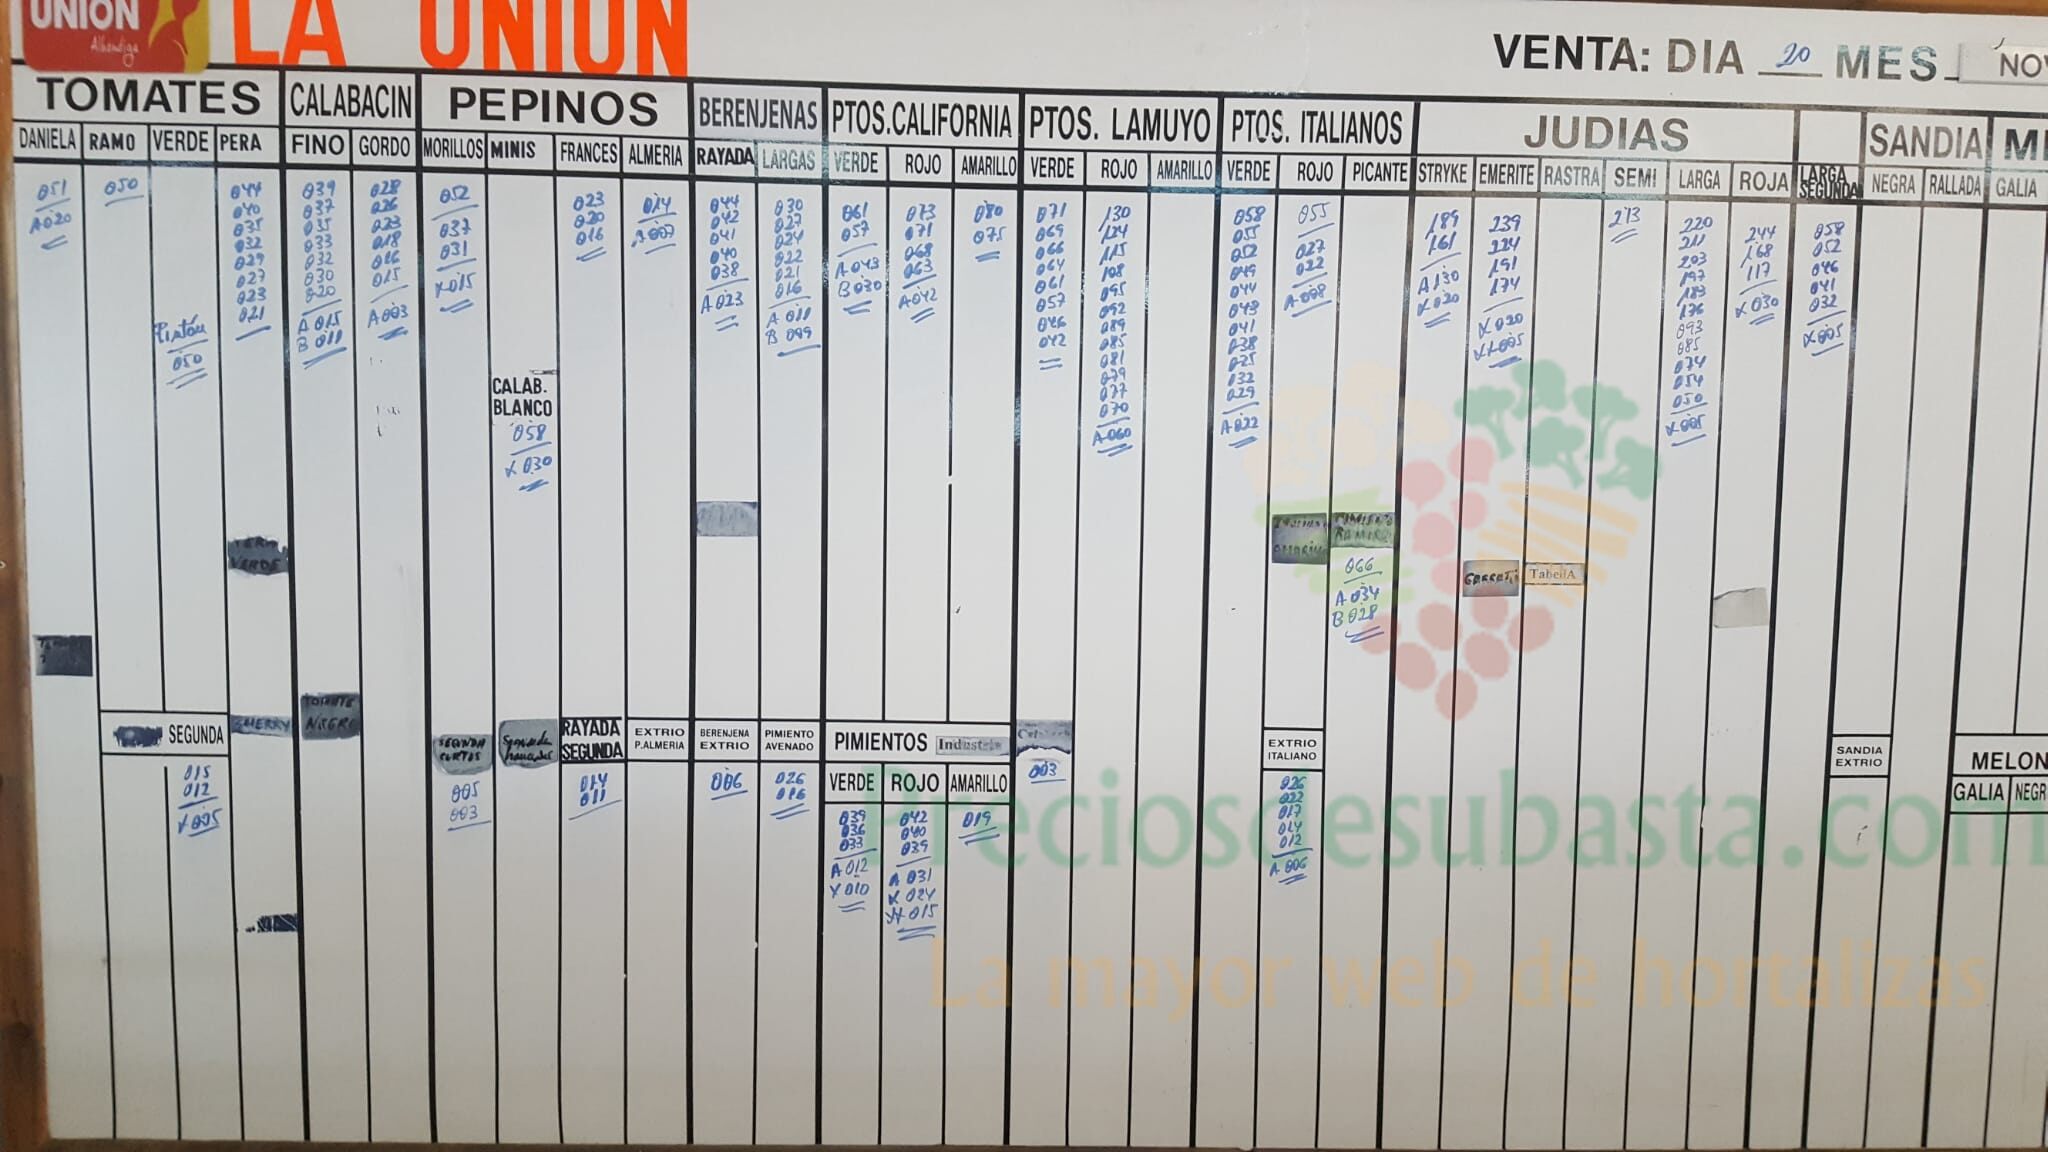 UNION
Alhondiga
LA UNION
VENTA: DIA 20 MES NOV
TOMATES
CALABACIN
PEPINOS
BERENJENAS
PTOS.CALIFORNIA
PTOS. LAMUYO
PTOS. ITALIANOS
JUDIAS
SANDIA
DANIELA
051
A 020
RAMO
050
VERDE
Pintón
050
PERA
044
040
035
032
029
027
023
021
FINO
039
037
035
033
032
030
020
A 015
B 011
GORDO
028
026
023
018
016
015
A 003
MORILLOS
052
037
031
X 015
MINIS
CALAB.
BLANCO
058
X 030
FRANCES
023
020
016
ALMERIA
014
A 007
RAYADA
044
042
041
040
038
A 023
LARGAS
030
027
024
022
021
016
A 011
B 009
VERDE
061
057
A 043
B 030
ROJO
073
071
068
063
A 042
AMARILLO
080
075
VERDE
071
069
066
064
061
057
046
042
ROJO
130
124
115
108
095
092
089
085
081
079
077
070
A 060
AMARILLO
VERDE
058
055
052
049
044
043
041
038
035
032
029
A 022
ROJO
055
027
022
A 008
PICANTE
PIMIENTO
RAMIRO
066
A 034
B 028
STRYKE
189
161
A 130
X 020
EMERITE
239
224
191
174
X 020
XX 005
RASTRA
TabellA
SEMI
213
LARGA
220
211
203
197
183
176
093
085
074
054
050
X 005
ROJA
244
168
117
X 030
LARGA
SEGUNDA
058
052
046
041
032
X 005
NEGRA
RALLADA
GALIA
VERDE
SEGUNDA
015
012
X 005
CHERRY
TOMATE
NEGRO
SEGUNDA
CORTOS
005
003
Segunda
franceses
RAYADA
SEGUNDA
014
011
EXTRIO
P.ALMERIA
BERENJENA
EXTRIO
006
PIMIENTO
AVENADO
026
016
PIMIENTOS Industria
VERDE
039
036
033
A 012
X 010
ROJO
042
040
039
A 031
X 024
XX 015
AMARILLO
019
003
EXTRIO
ITALIANO
026
022
017
014
012
A 006
SANDIA
EXTRIO
MELON
GALIA
NEGR
Preciosdesubasta.com
La mayor web de hortalizas